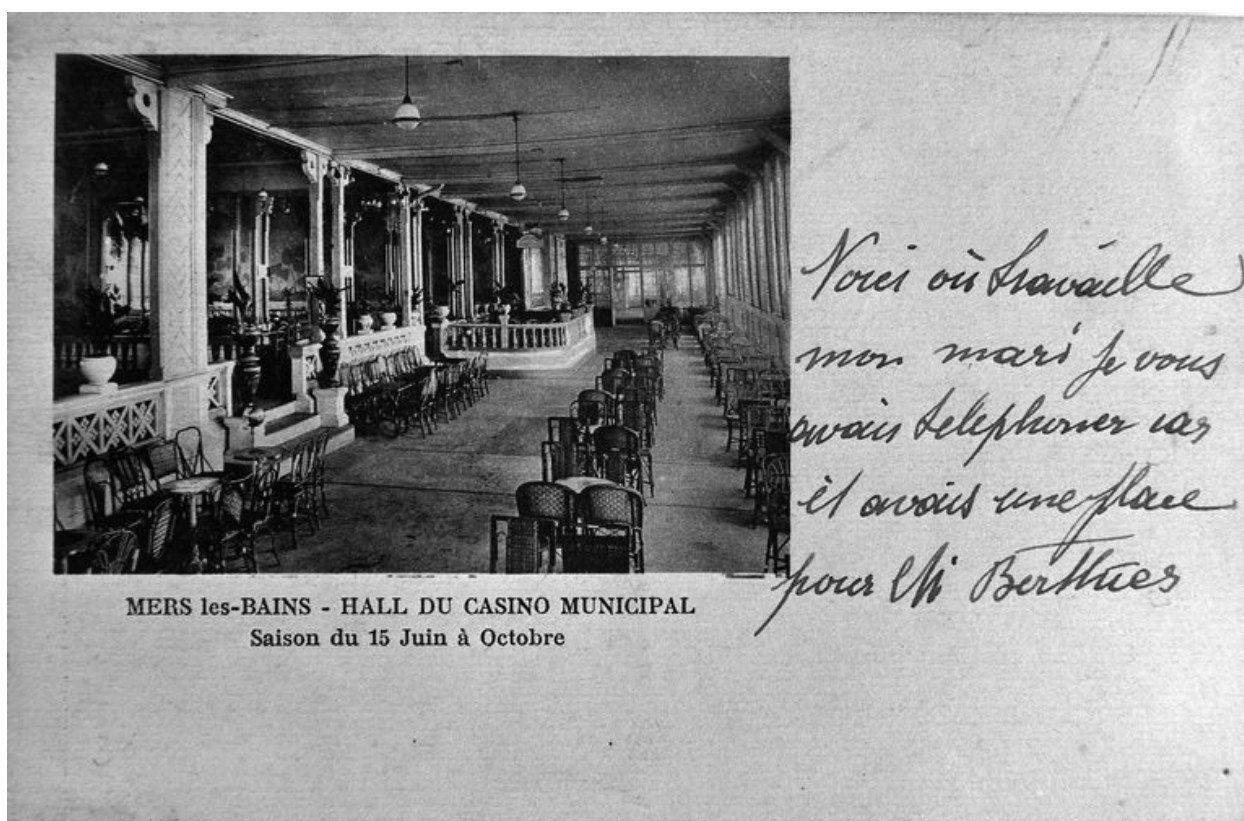 MERS les-BAINS - HALL DU CASINO MUNICIPAL
Saison du 15 Juin à Octobre
Voici où travaille
mon mari je vous
avais telephoner car
il avais une place
pour Mr Berthues